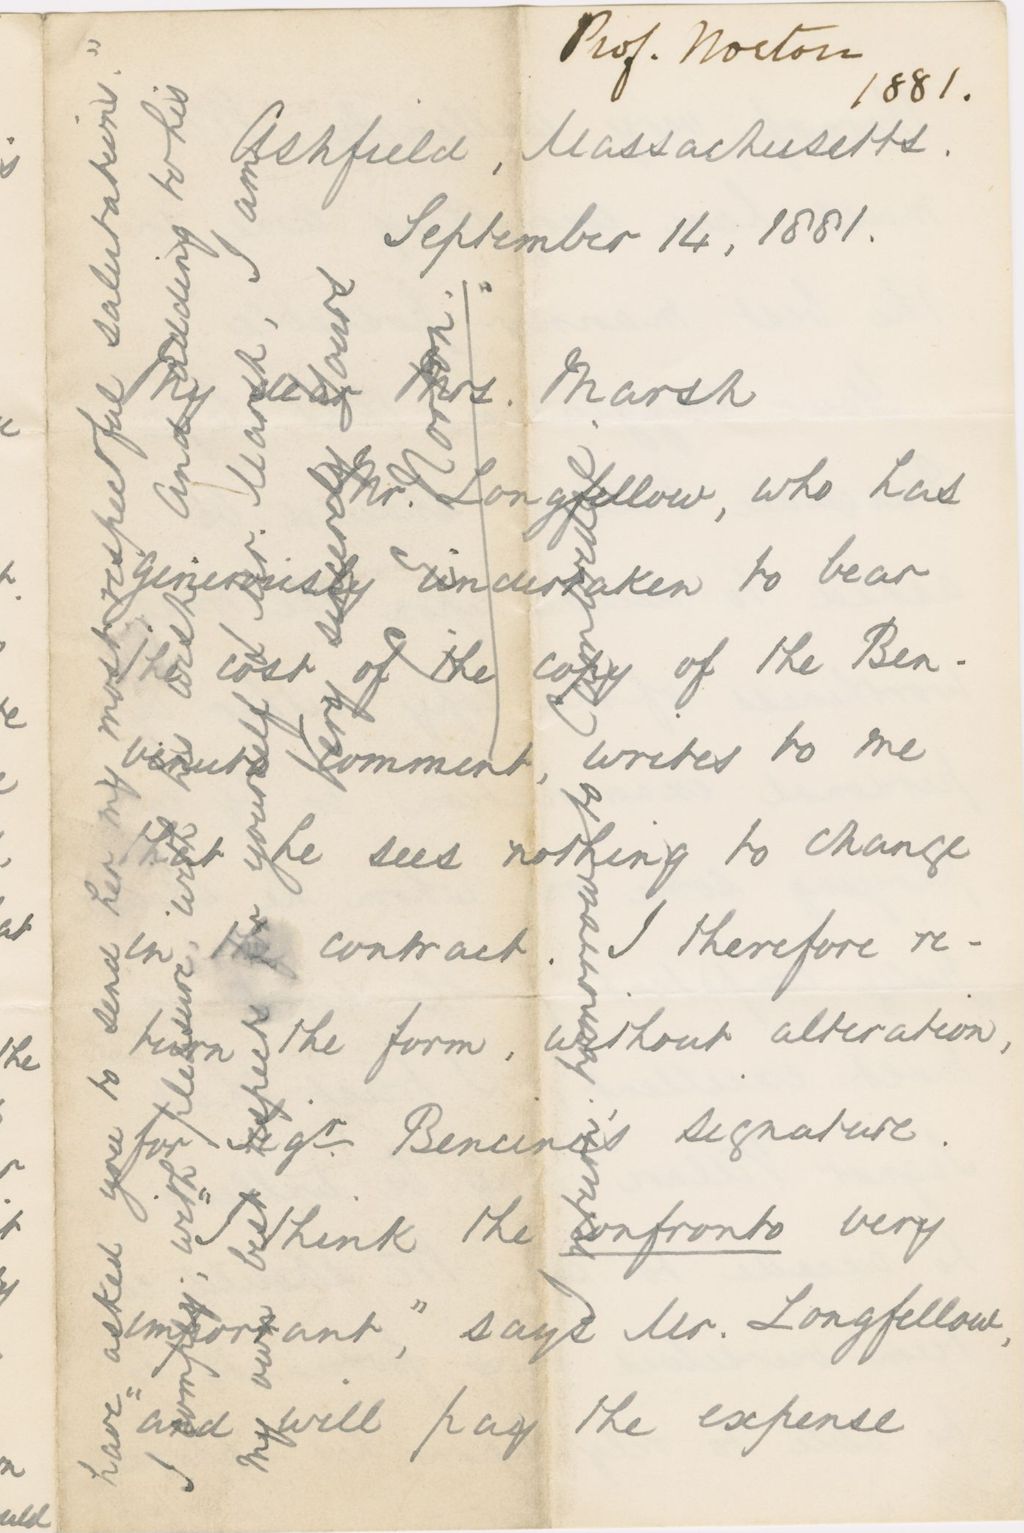 Prof. Norton
1881.
Ashfield, Massachusetts.
September 14, 1881.
My dear Mrs. Marsh
Mr. Longfellow, who has
generously undertaken to bear
the cost of the copy of the Ben-
venuto comment, writes to me
that he sees nothing to change
in the contract. I therefore re-
turn the form, without alteration,
for Sigr. Bencini's signature.
"I think the confronto very
important," says Mr. Longfellow,
and will pay the expense
have asked you to send her my most respectful salutations."
I comply, with pleasure, with his wish. And adding to his
my own best respects for yourself & Mr. Marsh, I am
Very sincerely Yours
C. E. Norton."
return tomorrow to Cambridge.
the
at
uld